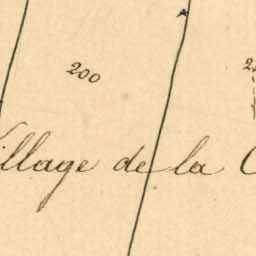 200
illage de la